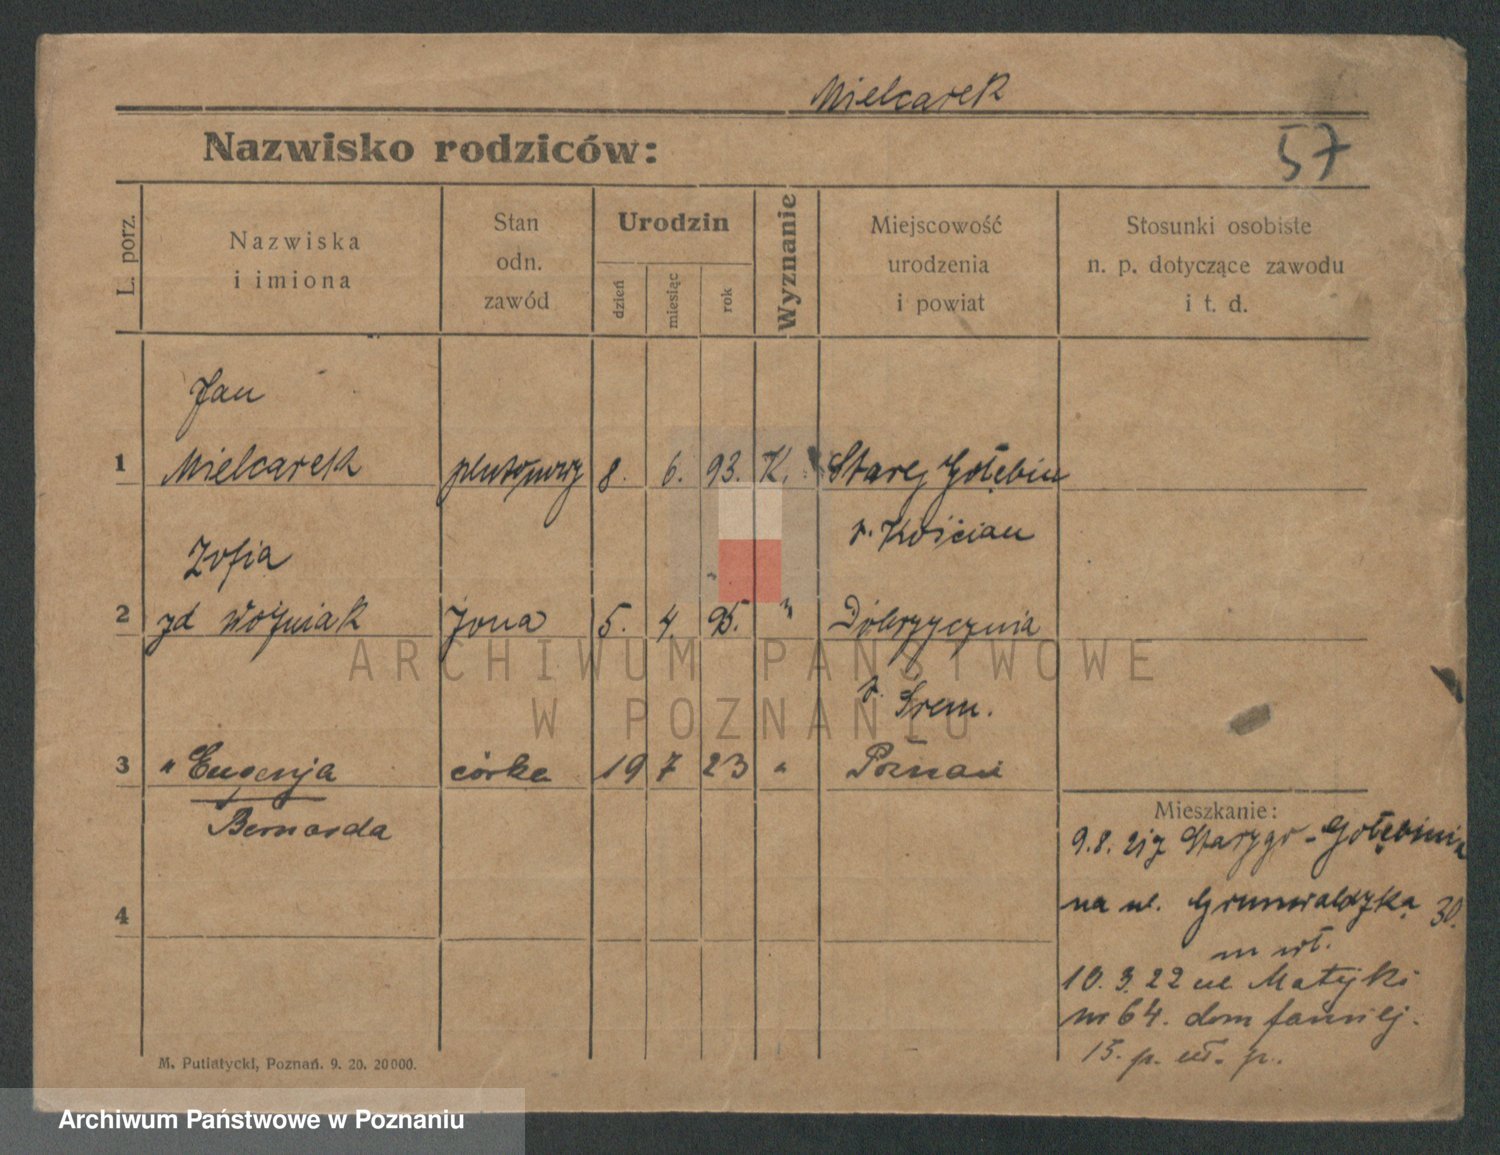 Mielcarek
Nazwisko rodziców:
57
L. porz.
Nazwiska
i imiona
Stan
odn.
zawód
Urodzin
dzień
miesiąc
rok
Wyznanie
Miejscowość
urodzenia
i powiat
Stosunki osobiste
n. p. dotyczące zawodu
i t. d.
Jan
1 Mielcarek plutonowy 8. 6. 93. K. Starej Gołębin
p. Kościan
Zofia
2 zd Woźniak żona 5. 4. 95. " Dobrzycznia
p. Srem.
3 " Eugenja córka 19 7 23 " Poznań
Bernarda
Mieszkanie:
9.8. 21 z Starego-Gołębina
na ul. Grunwaldzka 30.
m wł.
4
10. 3. 22 ul Matejki
nr 64. dom familij.
15. p. uł. p.
M. Putiatycki, Poznań. 9. 20. 20000.
ARCHIWUM PAŃSTWOWE
W POZNANIU
Archiwum Państwowe w Poznaniu